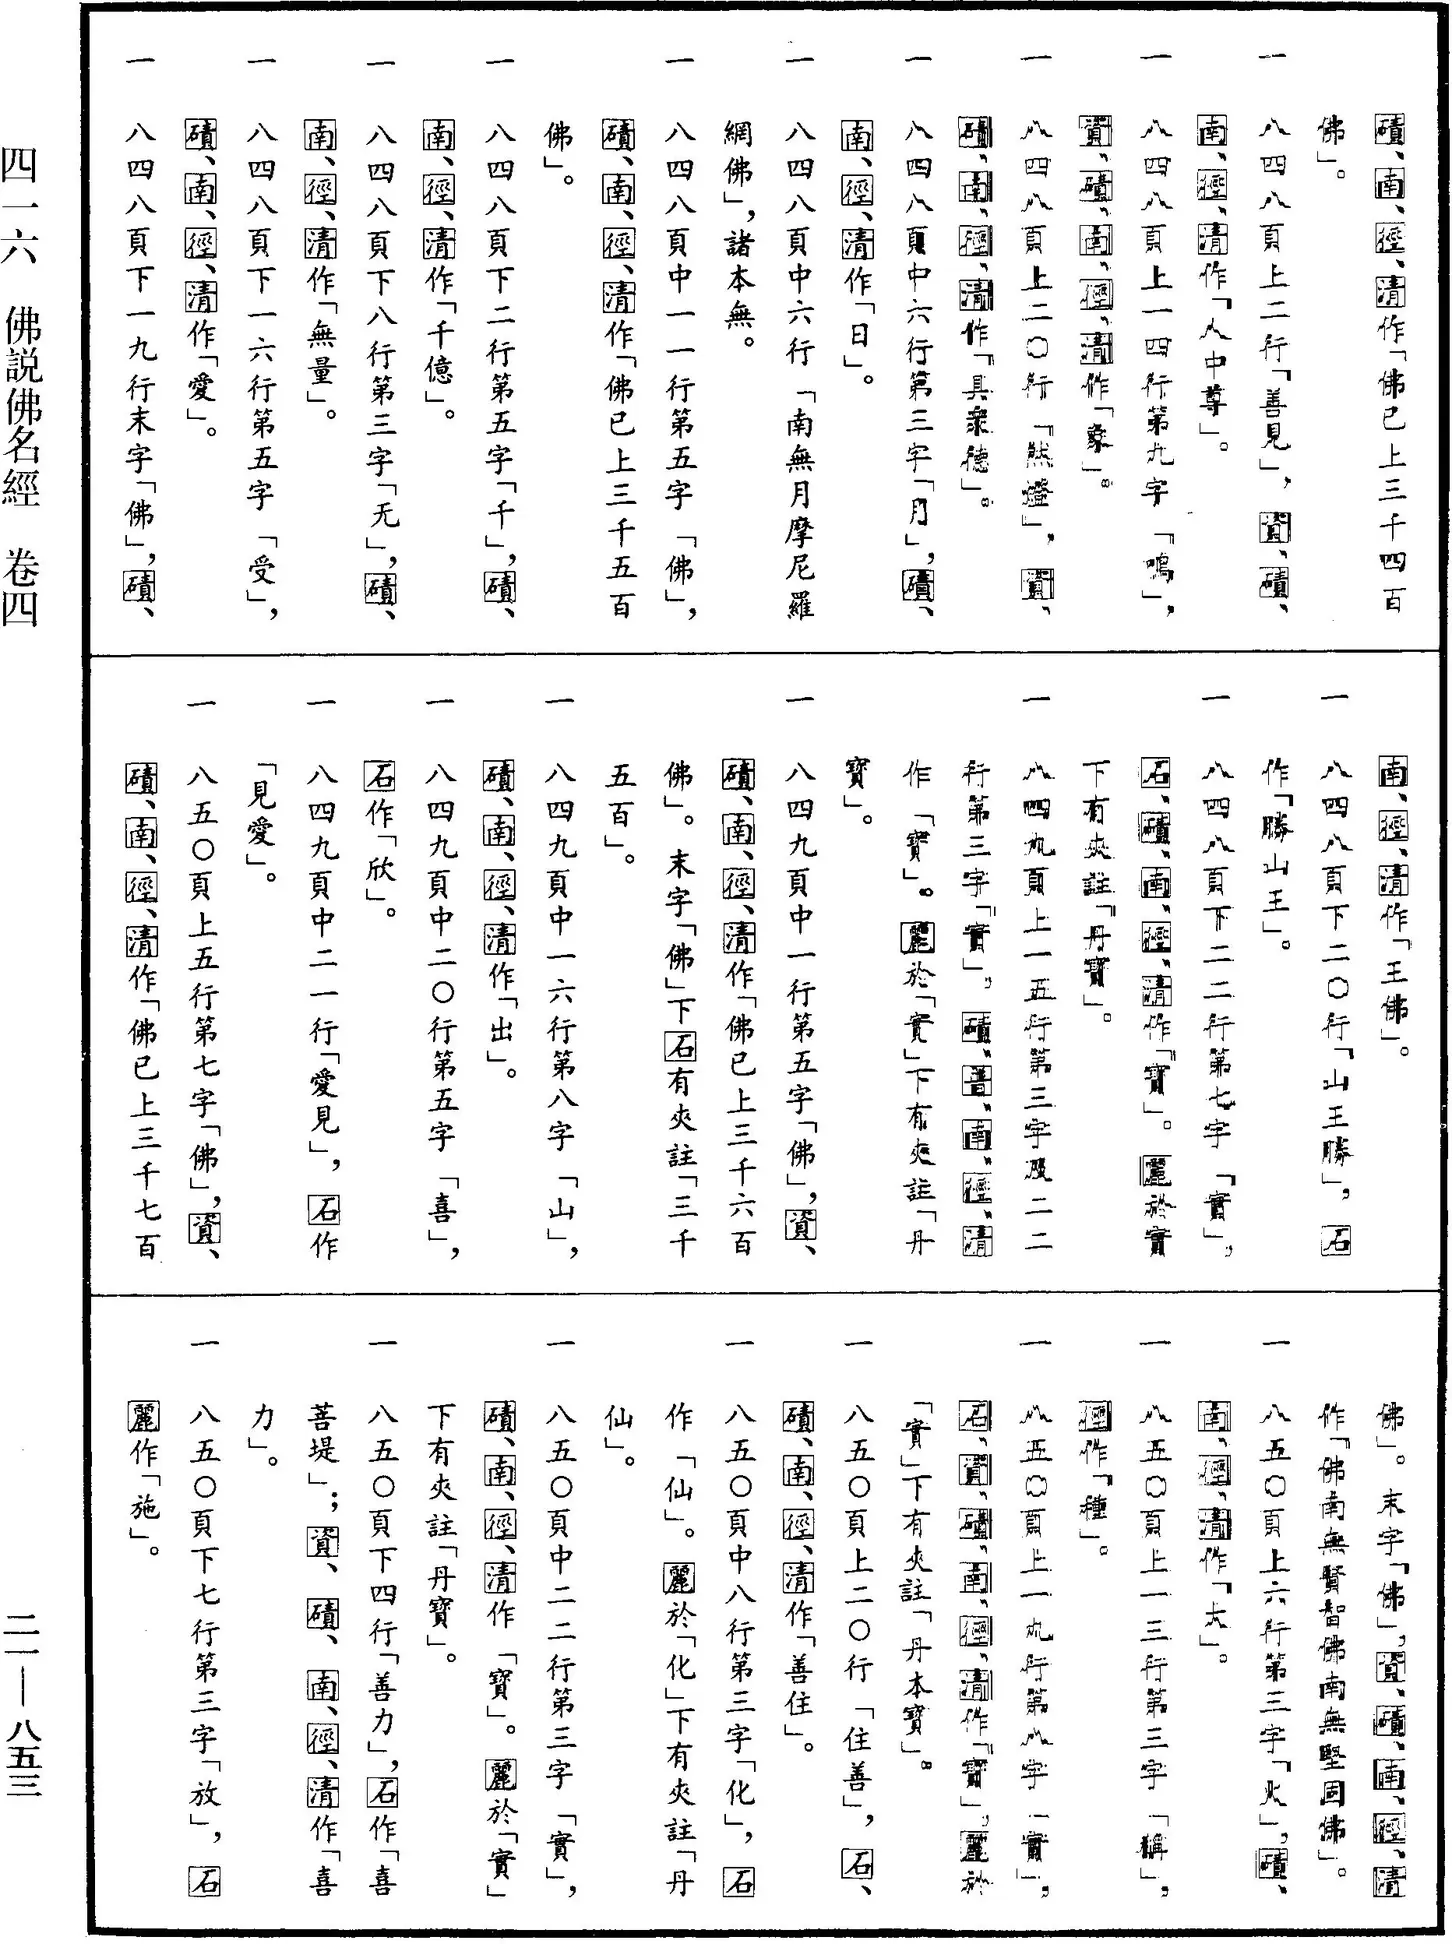 磧、南、徑、清作「佛已上三千四百
佛」。
一 八四八頁上二行「善見」，資、磧、
南、徑、清作「人中尊」。
一 八四八頁上一四行第九字「鳴」，
資、磧、南、徑、清作「象」。
一 八四八頁上二〇行「然燈」，資、
磧、南、徑、清作「具衆德」。
一 八四八頁中六行第三字「月」，磧、
南、徑、清作「日」。
一 八四八頁中六行「南無月摩尼羅
網佛」，諸本無。
一 八四八頁中一一行第五字「佛」，
磧、南、徑、清作「佛已上三千五百
佛」。
一 八四八頁下二行第五字「千」，磧、
南、徑、清作「千億」。
一 八四八頁下八行第三字「无」，磧、
南、徑、清作「無量」。
一 八四八頁下一六行第五字「受」，
磧、南、徑、清作「愛」。
一 八四八頁下一九行末字「佛」，磧、
南、徑、清作「王佛」。
一 八四八頁下二〇行「山王勝」，石
作「勝山王」。
一 八四八頁下二二行第七字「實」，
石、磧、南、徑、清作「寶」。麗於實
下有夾註「丹寶」。
一 八四九頁上一五行第三字及二二
行第三字「實」，磧、普、南、徑、清
作「寶」。麗於「實」下有夾註「丹
寶」。
一 八四九頁中一行第五字「佛」，資、
磧、南、徑、清作「佛已上三千六百
佛」。末字「佛」下石有夾註「三千
五百」。
一 八四九頁中一六行第八字「山」，
磧、南、徑、清作「出」。
一 八四九頁中二〇行第五字「喜」，
石作「欣」。
一 八四九頁中二一行「愛見」，石作
「見愛」。
一 八五〇頁上五行第七字「佛」，資、
磧、南、徑、清作「佛已上三千七百
佛」。末字「佛」，資、磧、南、徑、清
作「佛南無賢智佛南無堅固佛」。
一 八五〇頁上六行第三字「火」，磧、
南、徑、清作「大」。
一 八五〇頁上一三行第三字「稱」，
徑作「種」。
一 八五〇頁上一九行第八字「實」，
石、資、磧、南、徑、清作「寶」，麗於
「實」下有夾註「丹本寶」。
一 八五〇頁上二〇行「住善」，石、
磧、南、徑、清作「善住」。
一 八五〇頁中八行第三字「化」，石
作「仙」。麗於「化」下有夾註「丹
仙」。
一 八五〇頁中二二行第三字「實」，
磧、南、徑、清作「寶」。麗於「實」
下有夾註「丹寶」。
一 八五〇頁下四行「善力」，石作「喜
菩堤」；資、磧、南、徑、清作「喜
力」。
一 八五〇頁下七行第三字「放」，石
麗作「施」。
四一六 佛説佛名經 卷四
二一—八五三